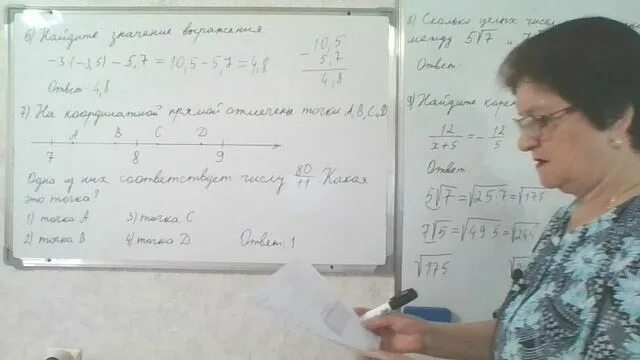 6) Найдите значение выражения
-3·(-3,5) - 5,7 = 10,5 - 5,7 = 4,8
10,5
- 5,7
4,8
Ответ: 4,8
7) На координатной прямой отмечены точки A, B, C, D.
A B C D
7 8 9
Одна из них соответствует числу 80/11. Какая
это точка?
1) точка A 3) точка C
2) точка B 4) точка D Ответ: 1
8) Сколько целых чисел
между 5√7
Ответ:
9) Найдите
12/(x+5) = -12/5
Ответ
5√7 = √25·7 = √175
7√5 = √49·5 = √245
√175